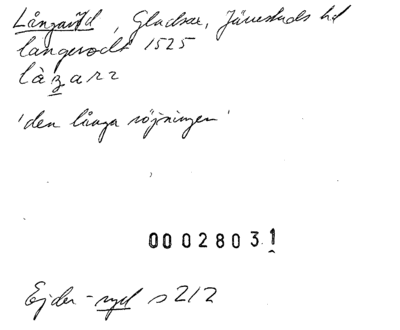 Långaröd, Gladsax, Järrestads hd
langerodt 1525
làʒarr
'den långa röjningen'
00028031
Ejder-ryd s 212